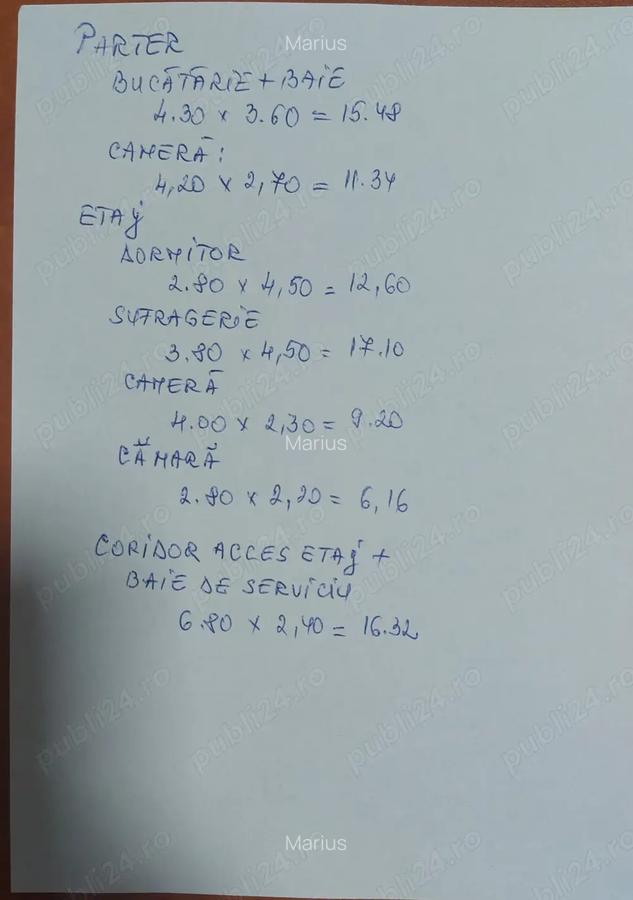 PARTER
BUCĂTĂRIE + BAIE
4.30 x 3.60 = 15.48
CAMERĂ:
4,20 x 2,70 = 11.34
ETAJ
DORMITOR
2.80 x 4,50 = 12,60
SUFRAGERIE
3.80 x 4,50 = 17.10
CAMERĂ
4.00 x 2,30 = 9.20
CĂMARĂ
2.80 x 2,20 = 6,16
CORIDOR ACCES ETAJ +
BAIE DE SERVICIU
6.80 x 2,40 = 16.32
Marius
Marius
Marius
publi24.ro